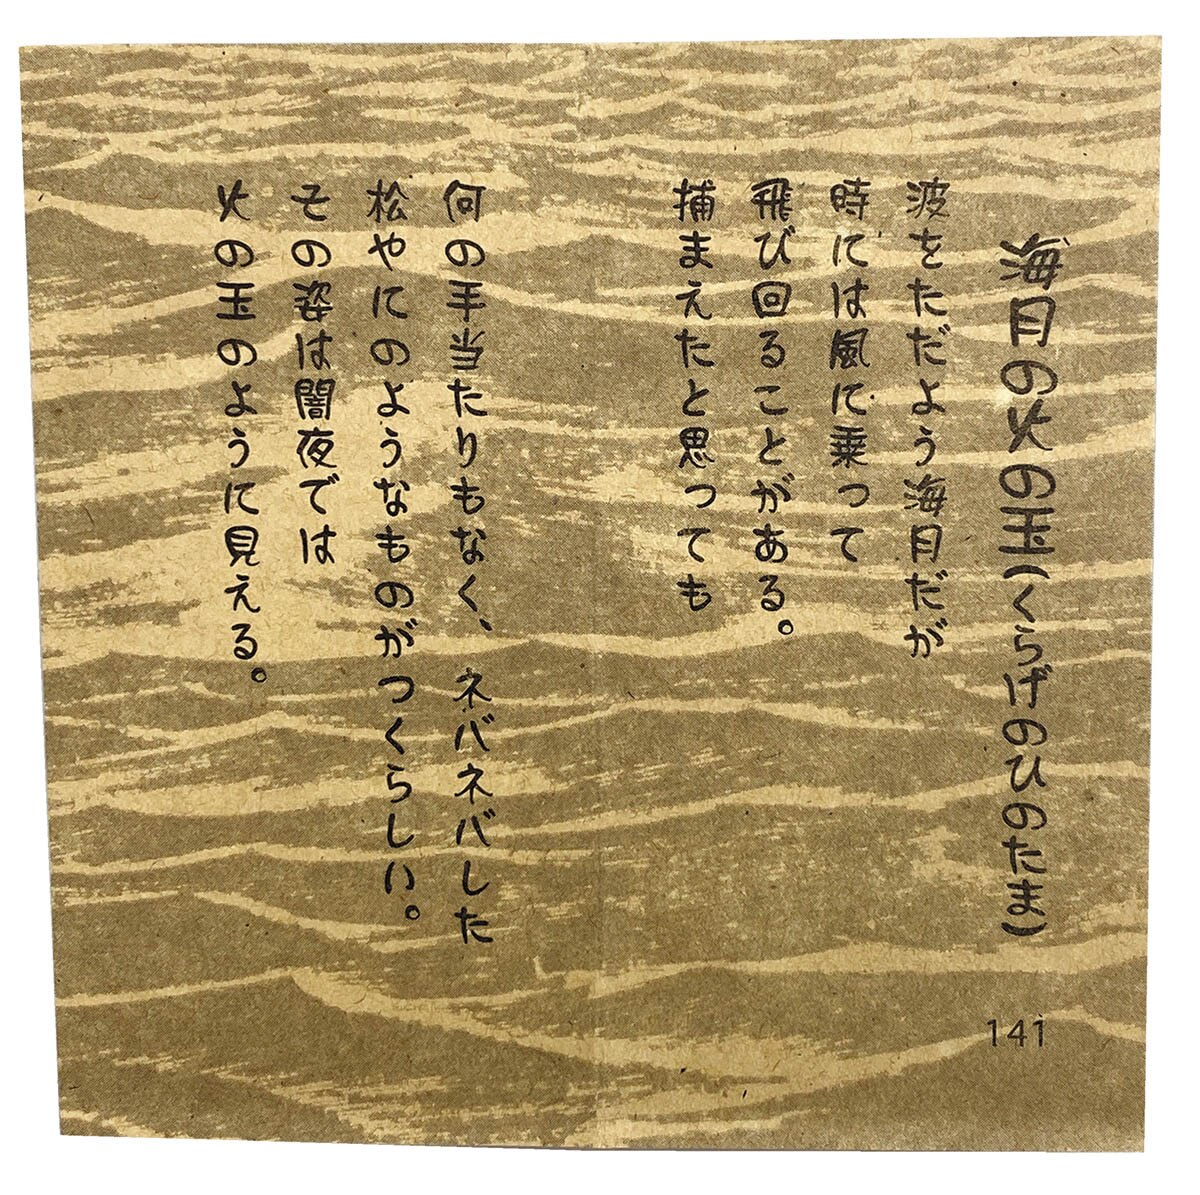 海月の火の玉(くらげのひのたま)
波をただよう海月だが
時には風に乗って
飛び回ることがある。
捕まえたと思っても
何の手当たりもなく、ネバネバした
松やにのようなものがつくらしい。
その姿は闇夜では
火の玉のように見える。
141